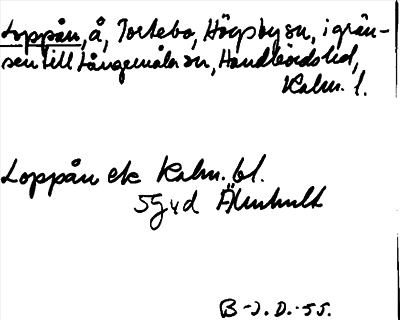 Loppån, å, Torsebo, Högsby sn, i grän-
sen till Långemåla sn, Handbörds hd,
Kalm. l.
Loppån ek Kalm. bl.
5 G v d Älmhult
B-J. D. -55.